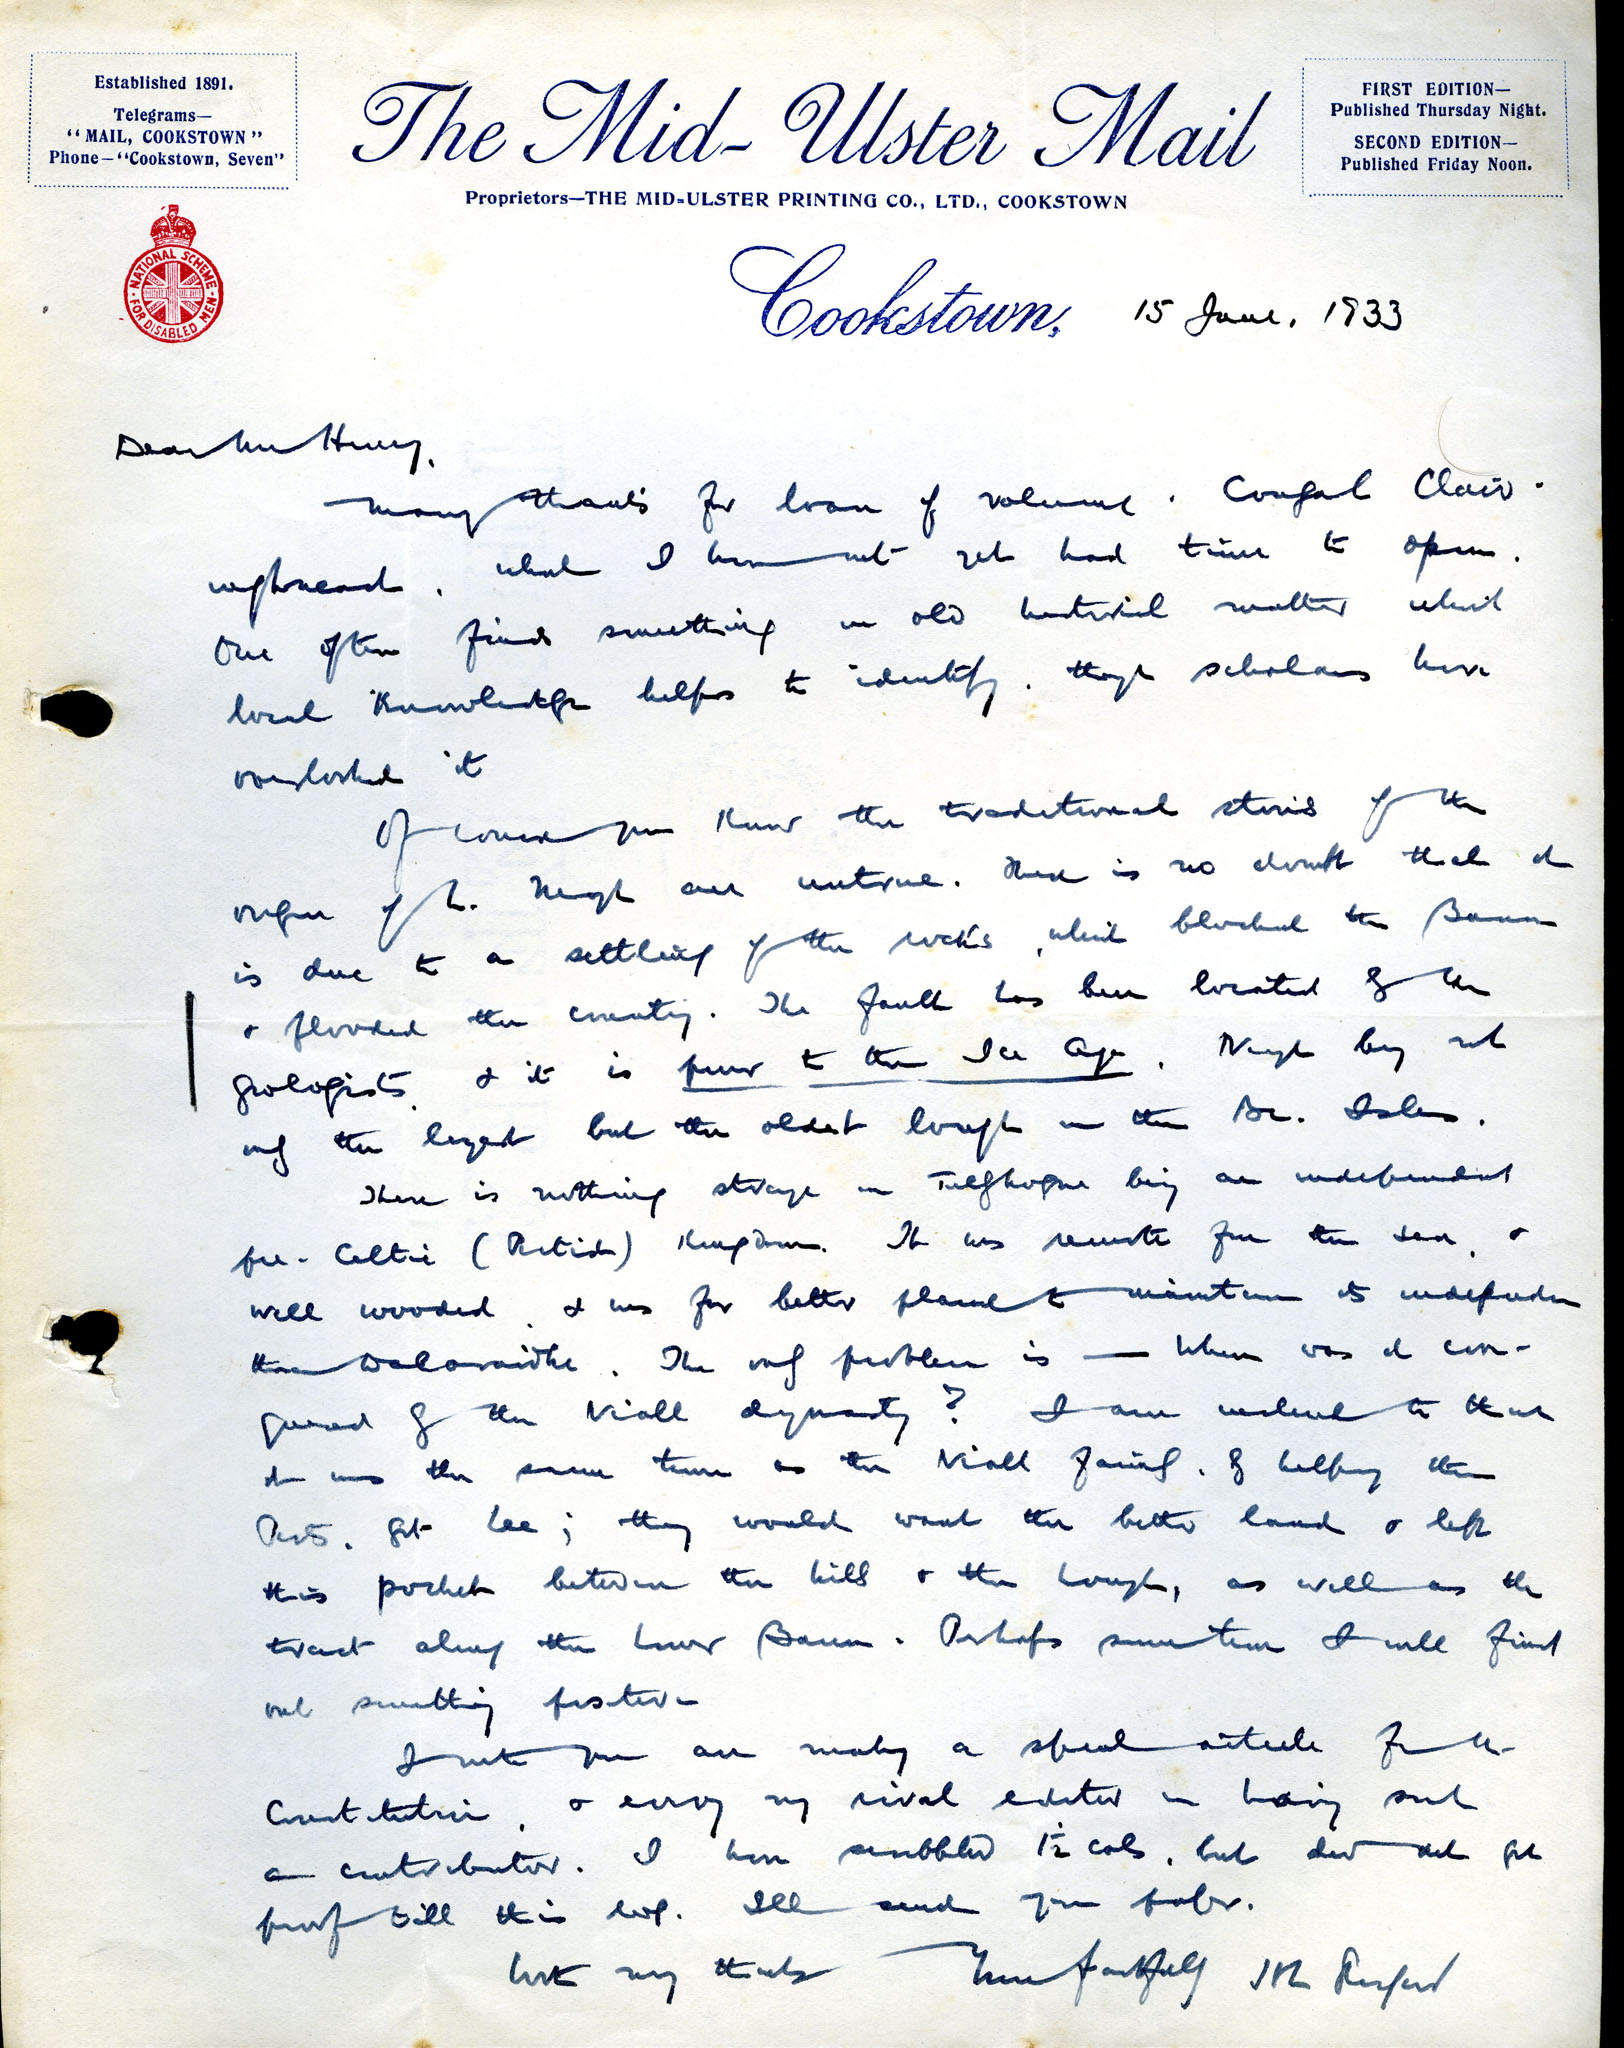 Established 1891.
Telegrams—
"MAIL, COOKSTOWN"
Phone—"Cookstown, Seven"
The Mid-Ulster Mail
Proprietors—THE MID-ULSTER PRINTING CO., LTD., COOKSTOWN
FIRST EDITION—
Published Thursday Night.
SECOND EDITION—
Published Friday Noon.
NATIONAL SCHEME
FOR DISABLED MEN
Cookstown, 15 June. 1933
Dear Mr Henry,
Many thanks for loan of volume. Congal Clair-
which I have not yet had time to open.
One often finds something in old material matter which
local knowledge helps to identify, though scholars have
overlooked it
Of course you know the traditional stories of the
origin of L. Neagh are untrue. There is no doubt that it
is due to a settling of the rocks, which blocked the Bann
& flooded the country. The fault has been located by the
geologists, & it is prior to the Ice Age. Neagh being not
only the largest but the oldest lough in the Br. Isles.
There is nothing strange in Tullyhogue being an independent
pre-Celtic (Pictish) Kingdom. It was remote from the sea, &
well wooded, & was far better placed to maintain its independen
than Dalaraidhe. The only problem is — When was it con-
quered by the Niall dynasty? I am inclined to think
it was the same time as the Niall family, by helping the
Picts, got Lee; they would want the better land & left
this pocket between the hills & the Lough, as well as the
tract along the Lower Bann. Perhaps sometime I will find
out something positive
I note you are making a special article for the
Constitution, & envy my rival editor in having such
a contributor. I have scribbled 1½ cols, but did not get
proof till this evg. I'll send you paper.
With many thanks Yours faithfully